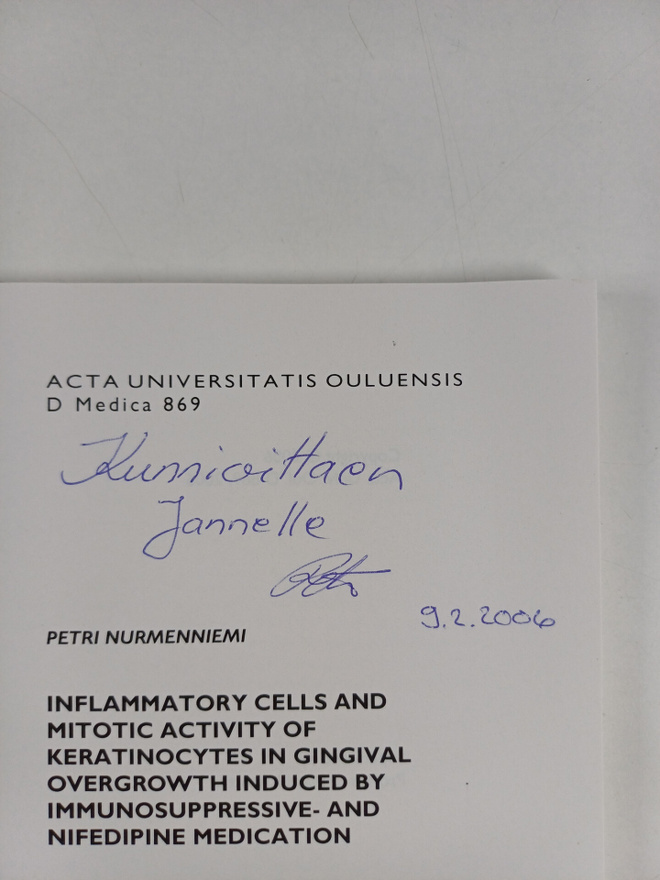 ACTA UNIVERSITATIS OULUENSIS
D Medica 869
Kunnioittaen
Jannelle
Petri
9.2.2006
PETRI NURMENNIEMI
INFLAMMATORY CELLS AND
MITOTIC ACTIVITY OF
KERATINOCYTES IN GINGIVAL
OVERGROWTH INDUCED BY
IMMUNOSUPPRESSIVE- AND
NIFEDIPINE MEDICATION